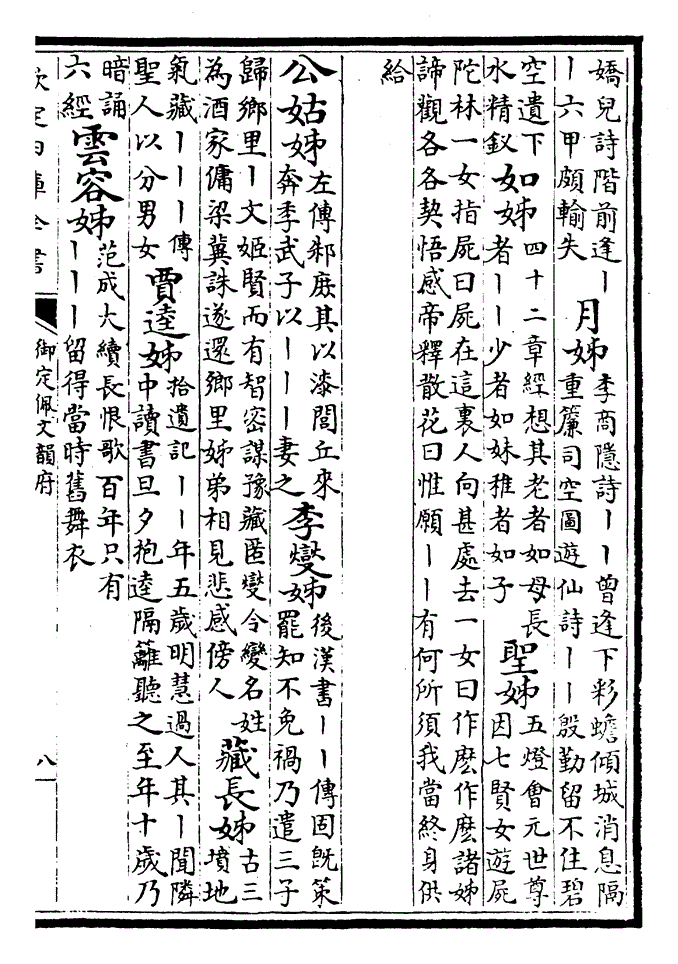 嬌兒詩階前逢丨
丨六甲頗輸失
月姊
李商隱詩丨丨曾逢下彩蟾傾城消息隔
重簾司空圖遊仙詩丨丨殷勤留不住碧
空遺下
水精釵
如姊
四十二章經想其老者如母長
者丨丨少者如妹稚者如子
聖姊
五燈會元世尊
因七賢女遊屍
陀林一女指屍曰屍在這裏人向甚處去一女曰作麽作麽諸姊
諦觀各各契悟感帝釋散花曰惟願丨丨有何所須我當終身供
給
公姑姊
左傳邾庶其以漆閭丘來
奔季武子以丨丨丨妻之
李燮姊
後漢書丨丨傳固既策
罷知不免禍乃遣三子
歸鄉里丨文姬賢而有智密謀豫藏匿燮令變名姓
為酒家傭梁冀誅遂還鄉里姊弟相見悲感傍人
藏長姊
古三
墳地
氣藏丨丨丨傳
聖人以分男女
賈逵姊
拾遺記丨丨年五歲明慧過人其丨聞隣
中讀書旦夕抱逵隔籬聽之至年十歲乃
暗誦
六經
雲容姊
范成大續長恨歌百年只有
丨丨丨留得當時舊舞衣
欽定四庫全書
御定佩文韻府
八